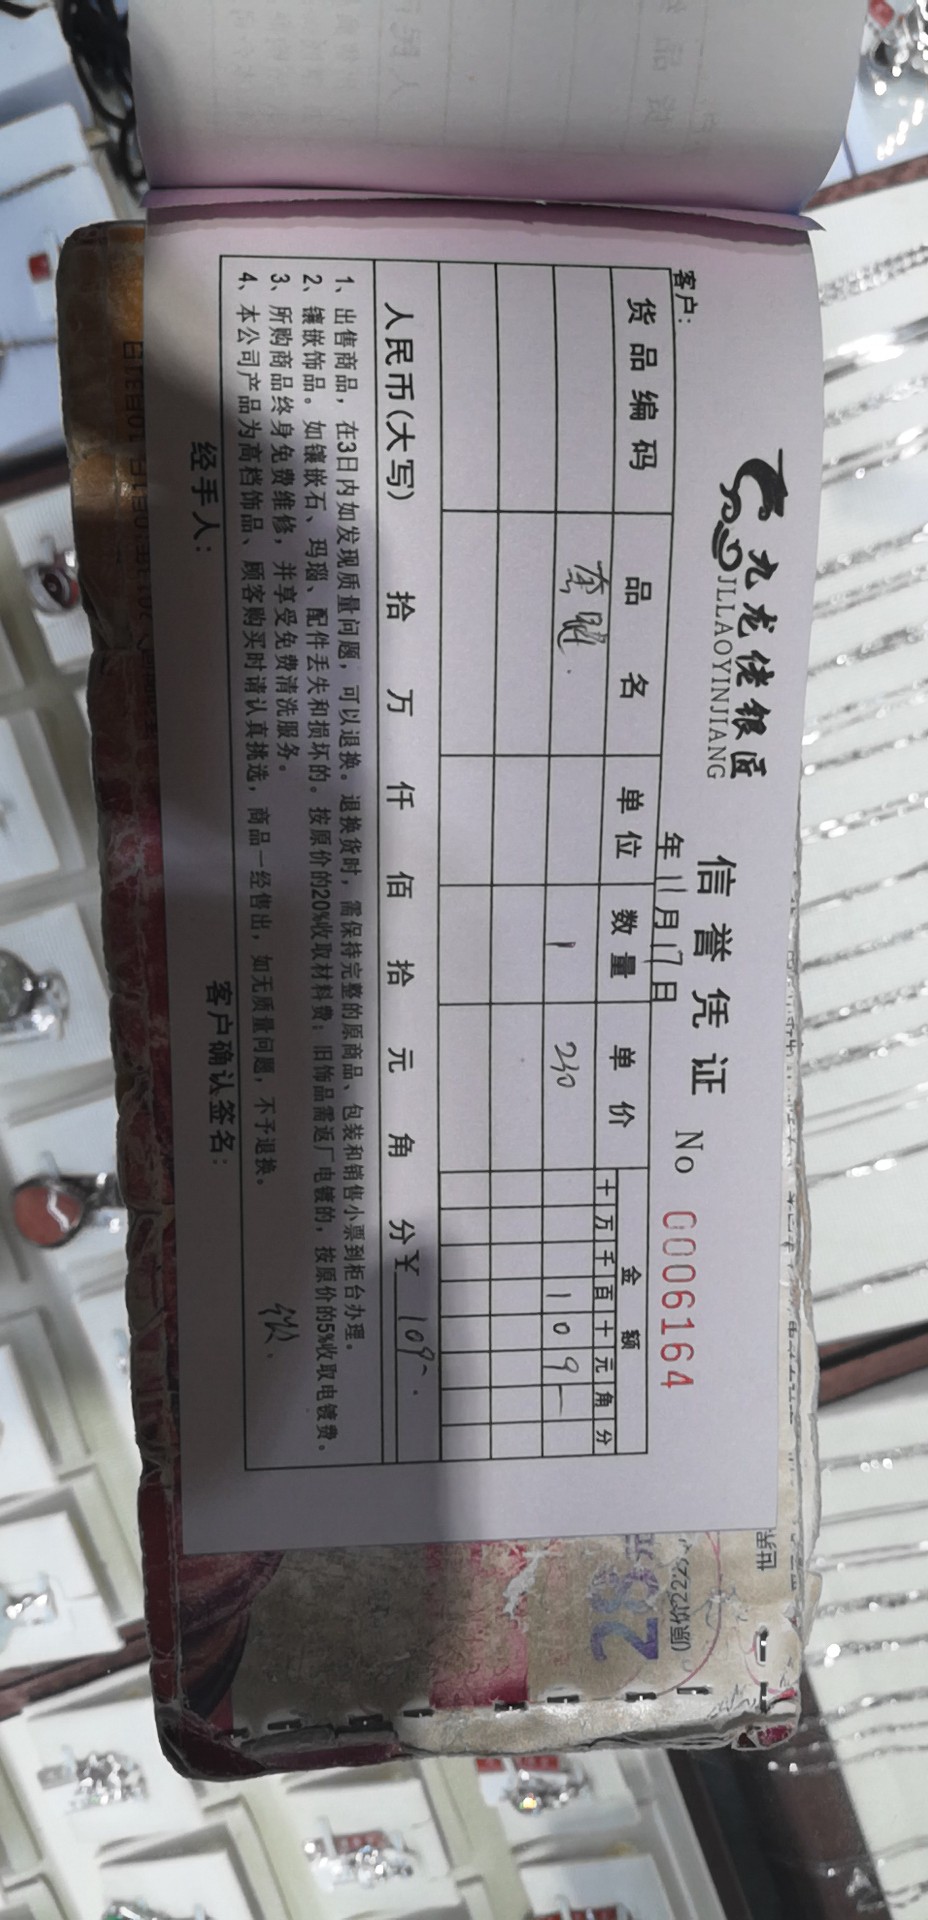 九龙佬银匠
JLLAOYINJIANG
信誉凭证 No 0006164
客户: 年11月17日
货品编码 品名 单位 数量 单价 金额
十万千百十元角分
1 230 109-
人民币(大写) 拾 万 仟 佰 拾 元 角 分 ¥ 109-.
1、出售商品，在3日内如发现质量问题，可以退换。退换货时，需保持完整的原商品、包装和销售小票到柜台办理。
2、镶嵌饰品。如镶嵌石、玛瑙、配件丢失和损坏的。按原价的20%收取材料费；旧饰品需返厂电镀的，按原价的5%收取电镀费。
3、所购商品终身免费维修，并享受免费清洗服务。
4、本公司产品为高档饰品、顾客购买时请认真挑选，商品一经售出，如无质量问题，不予退换。
经手人： 客户确认签名：
28
世界